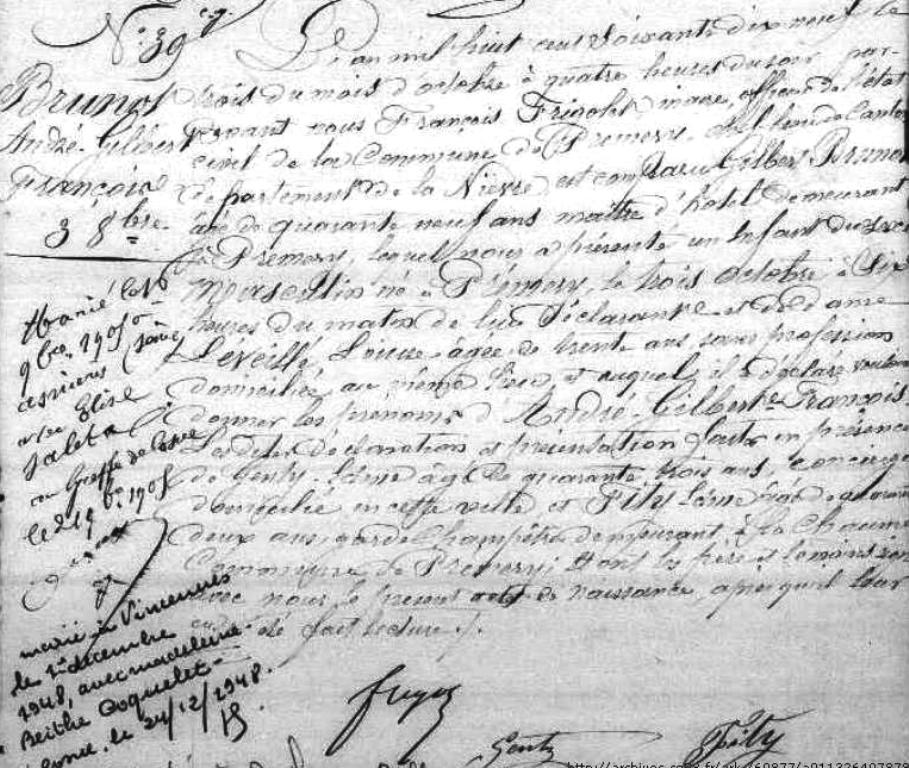 N° 39
Brunot
André-Gilbert
François
3 8bre
L'an mil huit cent soixante dix neuf le
trois du mois d'octobre à quatre heures du soir par-
devant nous François Frigolet, maire, officier de l'état
civil de la Commune de Prémery, chef lieu de Canton
département de la Nièvre, est comparu Gilbert Brunot
âgé de quarante neuf ans maître d'hotel demeurant
à Prémery, lequel nous a présenté un Enfant du sexe
masculin né à Prémery, le trois octobre à six
heures du matin de lui Déclarant et de dame
Léveillé, Louise âgée de trente ans sans profession
domiciliée au même lieu et auquel il a déclaré vouloir
donner les prénoms d'André-Gilbert François.
Lesdites déclaration et présentation faites en présence
de Genty âgé de quarante trois ans, concierge
domicilié en cette ville et Pity âgé de quarante
deux ans, garde champêtre demeurant à la Chaume
Commune de Prémery; Dont le père et témoins signé
avec nous le présent acte de naissance, après qu'il leur
en a été fait lecture ./.
Marié le 16
9bre 1905 à
asnieres (Seine)
avec Elise
au Greffe de
le 21 9bre 1905
marié à Vincennes
le 1er décembre
1948, avec Madeleine
Berthe Coquelet
le 24/12/1948.
Genty
Pity